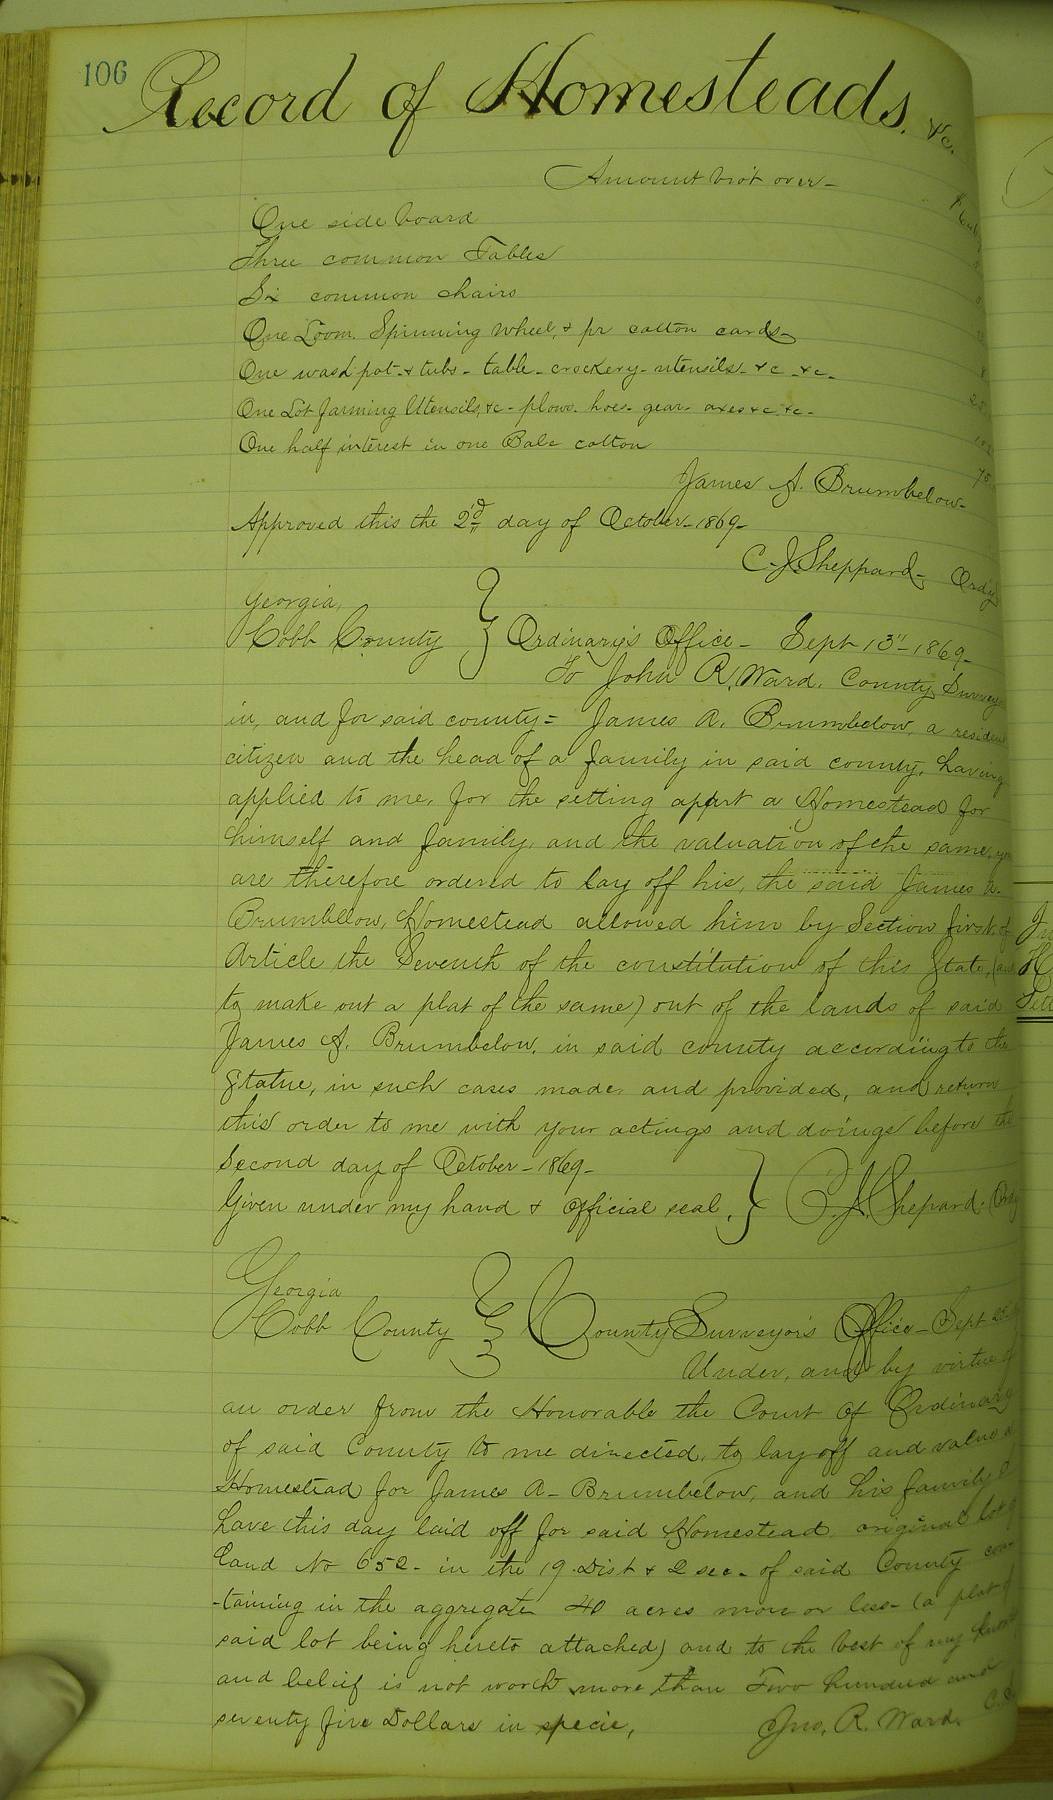 106
Record of Homesteads. &c.
Amount bro't over -
One side board
Three common Tables
Six common chairs
One Loom. Spinning wheel, & pr cotton cards -
One wash pot - & tubs - table - crockery - utensils - &c - &c -
One Lot farming Utensils, &c - plows. hoes - gear - axes &c &c -
One half interest in one Bale cotton 75
James A. Brumbelow -
Approved this the 2nd day of October - 1869 -
C. J. Sheppard - Ordy
Georgia,
Cobb County } Ordinary's Office - Sept 13" - 1869 -
To John R. Ward. County Surveyor
in, and for said county = James A. Brumbelow, a resident
citizen and the head of a family in said county, having
applied to me, for the setting apart a Homestead for
himself and family, and the valuation of the same, you
are therefore ordered to lay off his, the said James A.
Brumbelow, Homestead allowed him by Section first, of
Article the Seventh of the constitution of this State, (and
to make out a plat of the same) out of the lands of said
James A. Brumbelow, in said county according to the
Statue, in such cases made, and provided, and return
this order to me with your actings and doings before the
Second day of October - 1869 -
Given under my hand & official seal. } C. J. Shepard. Ordy
Georgia
Cobb County } County Surveyor's Office - Sept
Under, and by virtue of
an order from the Honorable the Court of Ordinary
of said County to me directed, to lay off and value a
Homestead for James A - Brumbelow, and his family I
have this day laid off for said Homestead original lot of
Land No 652 - in the 19 Dist & 2 sec - of said County con-
-taining in the aggregate 40 acres more or less - (a plat of
said lot being hereto attached) and to the best of my
and belief is not worth more than Two hundred and
seventy five Dollars in specie, Jno, R. Ward. C.S.